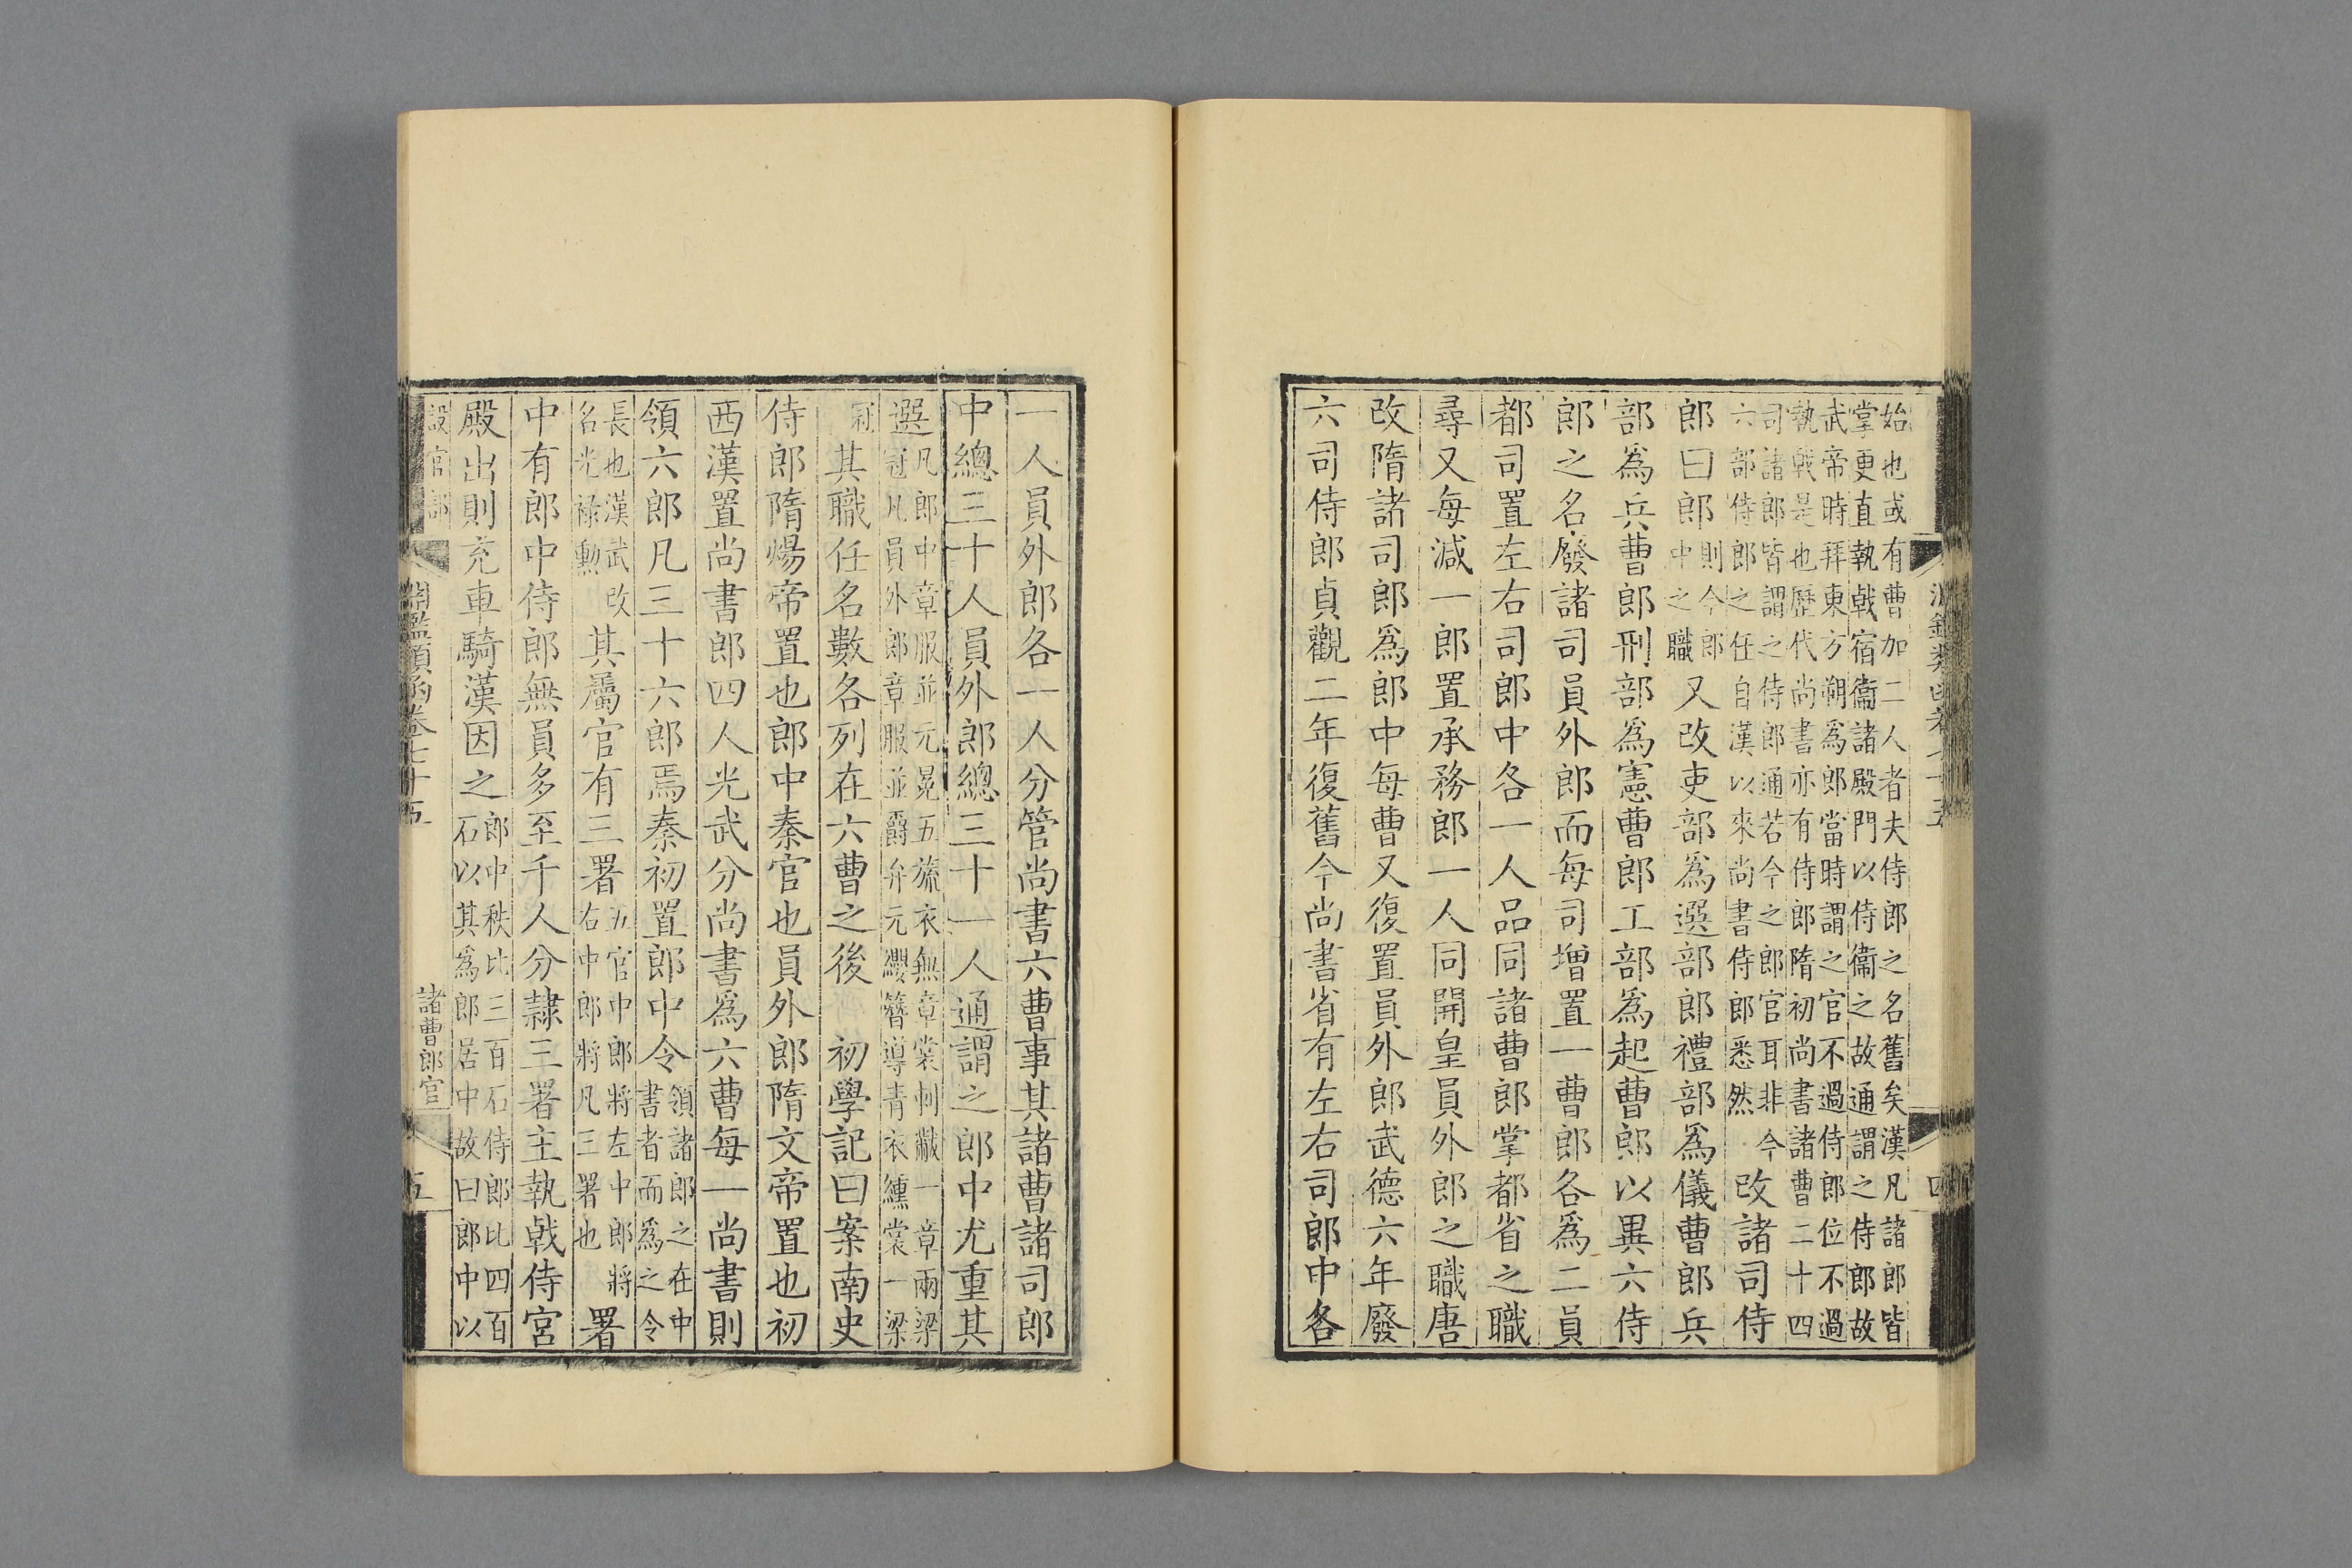 始也或有曹加二人者夫侍郎之名舊矣漢凡諸郎皆
掌更直執戟宿衞諸殿門以侍衞之故通謂之侍郎故
武帝時拜東方朔爲郎當時謂之官不過侍郎位不過
執戟是也歷代尚書亦有侍郎隋初尚書諸曹二十四
司諸郎皆謂之侍郎通若今之郎官耳非今
六部侍郎之任自漢以來尚書侍郎悉然改諸司侍
郎曰郎則今郎中之職又改吏部爲選部郎禮部爲儀曹郎兵
部爲兵曹郎刑部爲憲曹郎工部爲起曹郎以異六侍
郎之名廢諸司員外郎而每司增置一曹郎各爲二員
都司置左右司郎中各一人品同諸曹郎掌都省之職
尋又每減一郎置承務郎一人同開皇員外郎之職唐
改隋諸司郎爲郎中每曹又復置員外郎武德六年廢
六司侍郎貞觀二年復舊今尚書省有左右司郎中各
一人員外郎各一人分管尚書六曹事其諸曹諸司郎
中總三十人員外郎總三十一人通謂之郎中尤重其
選凡郎中章服並元冕五旒衣無章裳刺黻一章兩梁
冠凡員外郎章服並爵弁元纓簪導青衣纁裳一梁
冠其職任名數各列在六曹之後　初學記曰案南史
侍郎隋煬帝置也郎中秦官也員外郎隋文帝置也初
西漢置尚書郎四人光武分尚書爲六曹每一尚書則
領六郎凡三十六郎焉秦初置郎中令領諸郎之在中書者而爲之令
長也漢武改名光祿勳其屬官有三署五官中郎將左中郎將右中郎將凡三署也署
中有郎中侍郎無員多至千人分隸三署主執戟侍宮
殿出則充車騎漢因之郎中秩比三百石侍郎比四百石以其爲郎居中故曰郎中以
設官部
淵鑑類函卷七十五
諸曹郎官
五